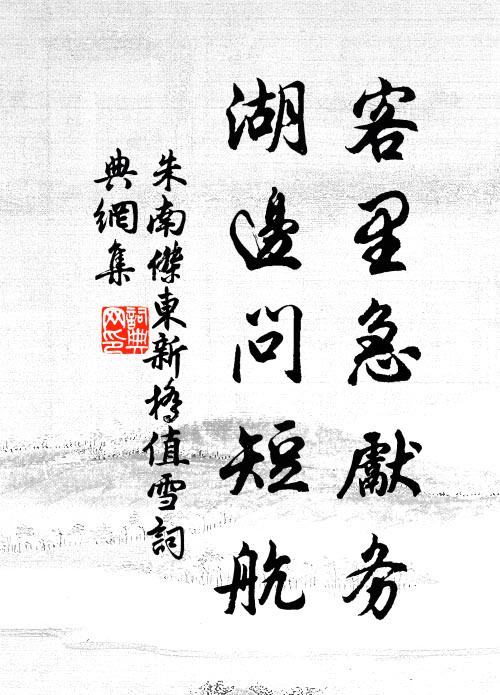 客里急獻务
湖邊问短航
朱南傑東新橋值雪詞
典網集
詞典网印